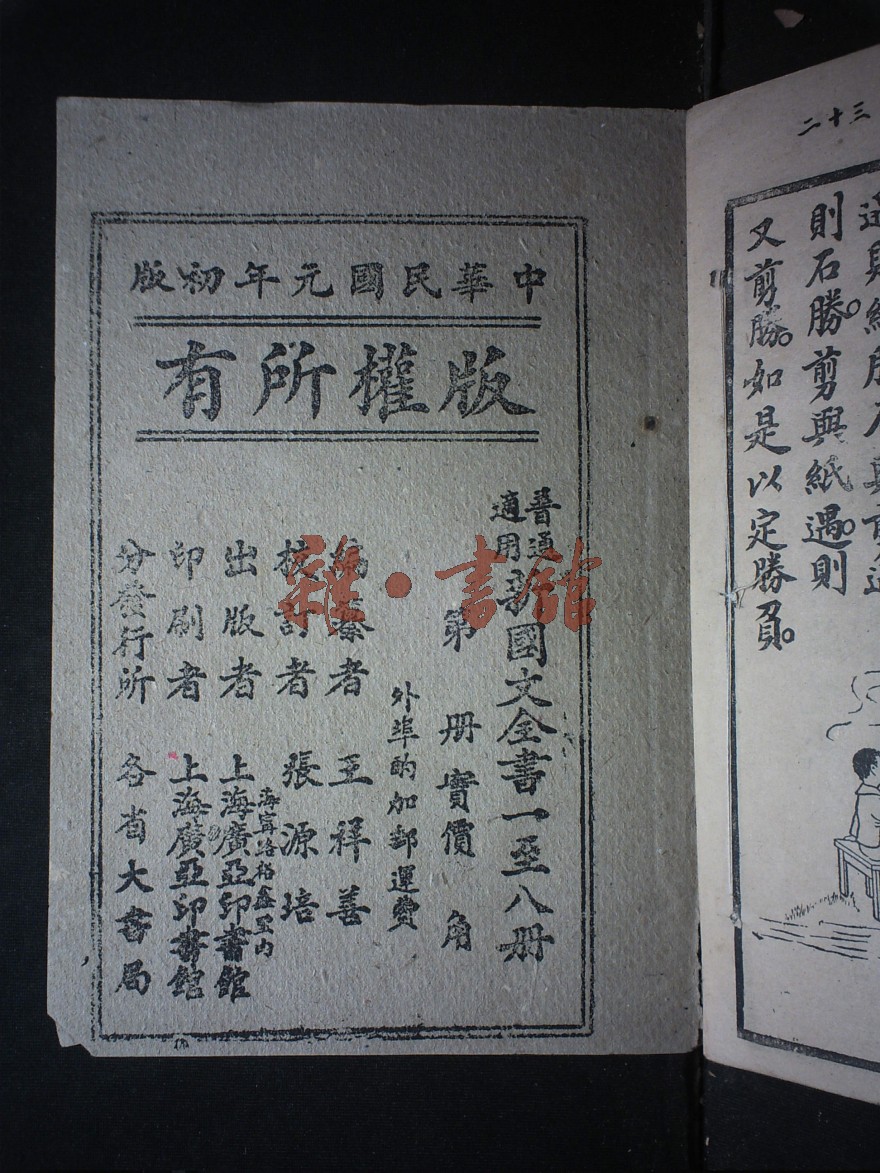 三十二
則石勝。剪與紙遇。則
又剪勝。如是以定勝負。
中華民國元年初版
版權所有
普通適用新國文全書一至八册
第 册實價 角
外埠酌加郵運費
編纂者 王祥善
校訂者 張源培
海甯路裕鑫里内
出版者 上海廣亞印書館
印刷者 上海廣亞印書館
分發行所 各省大書局
雜·書館